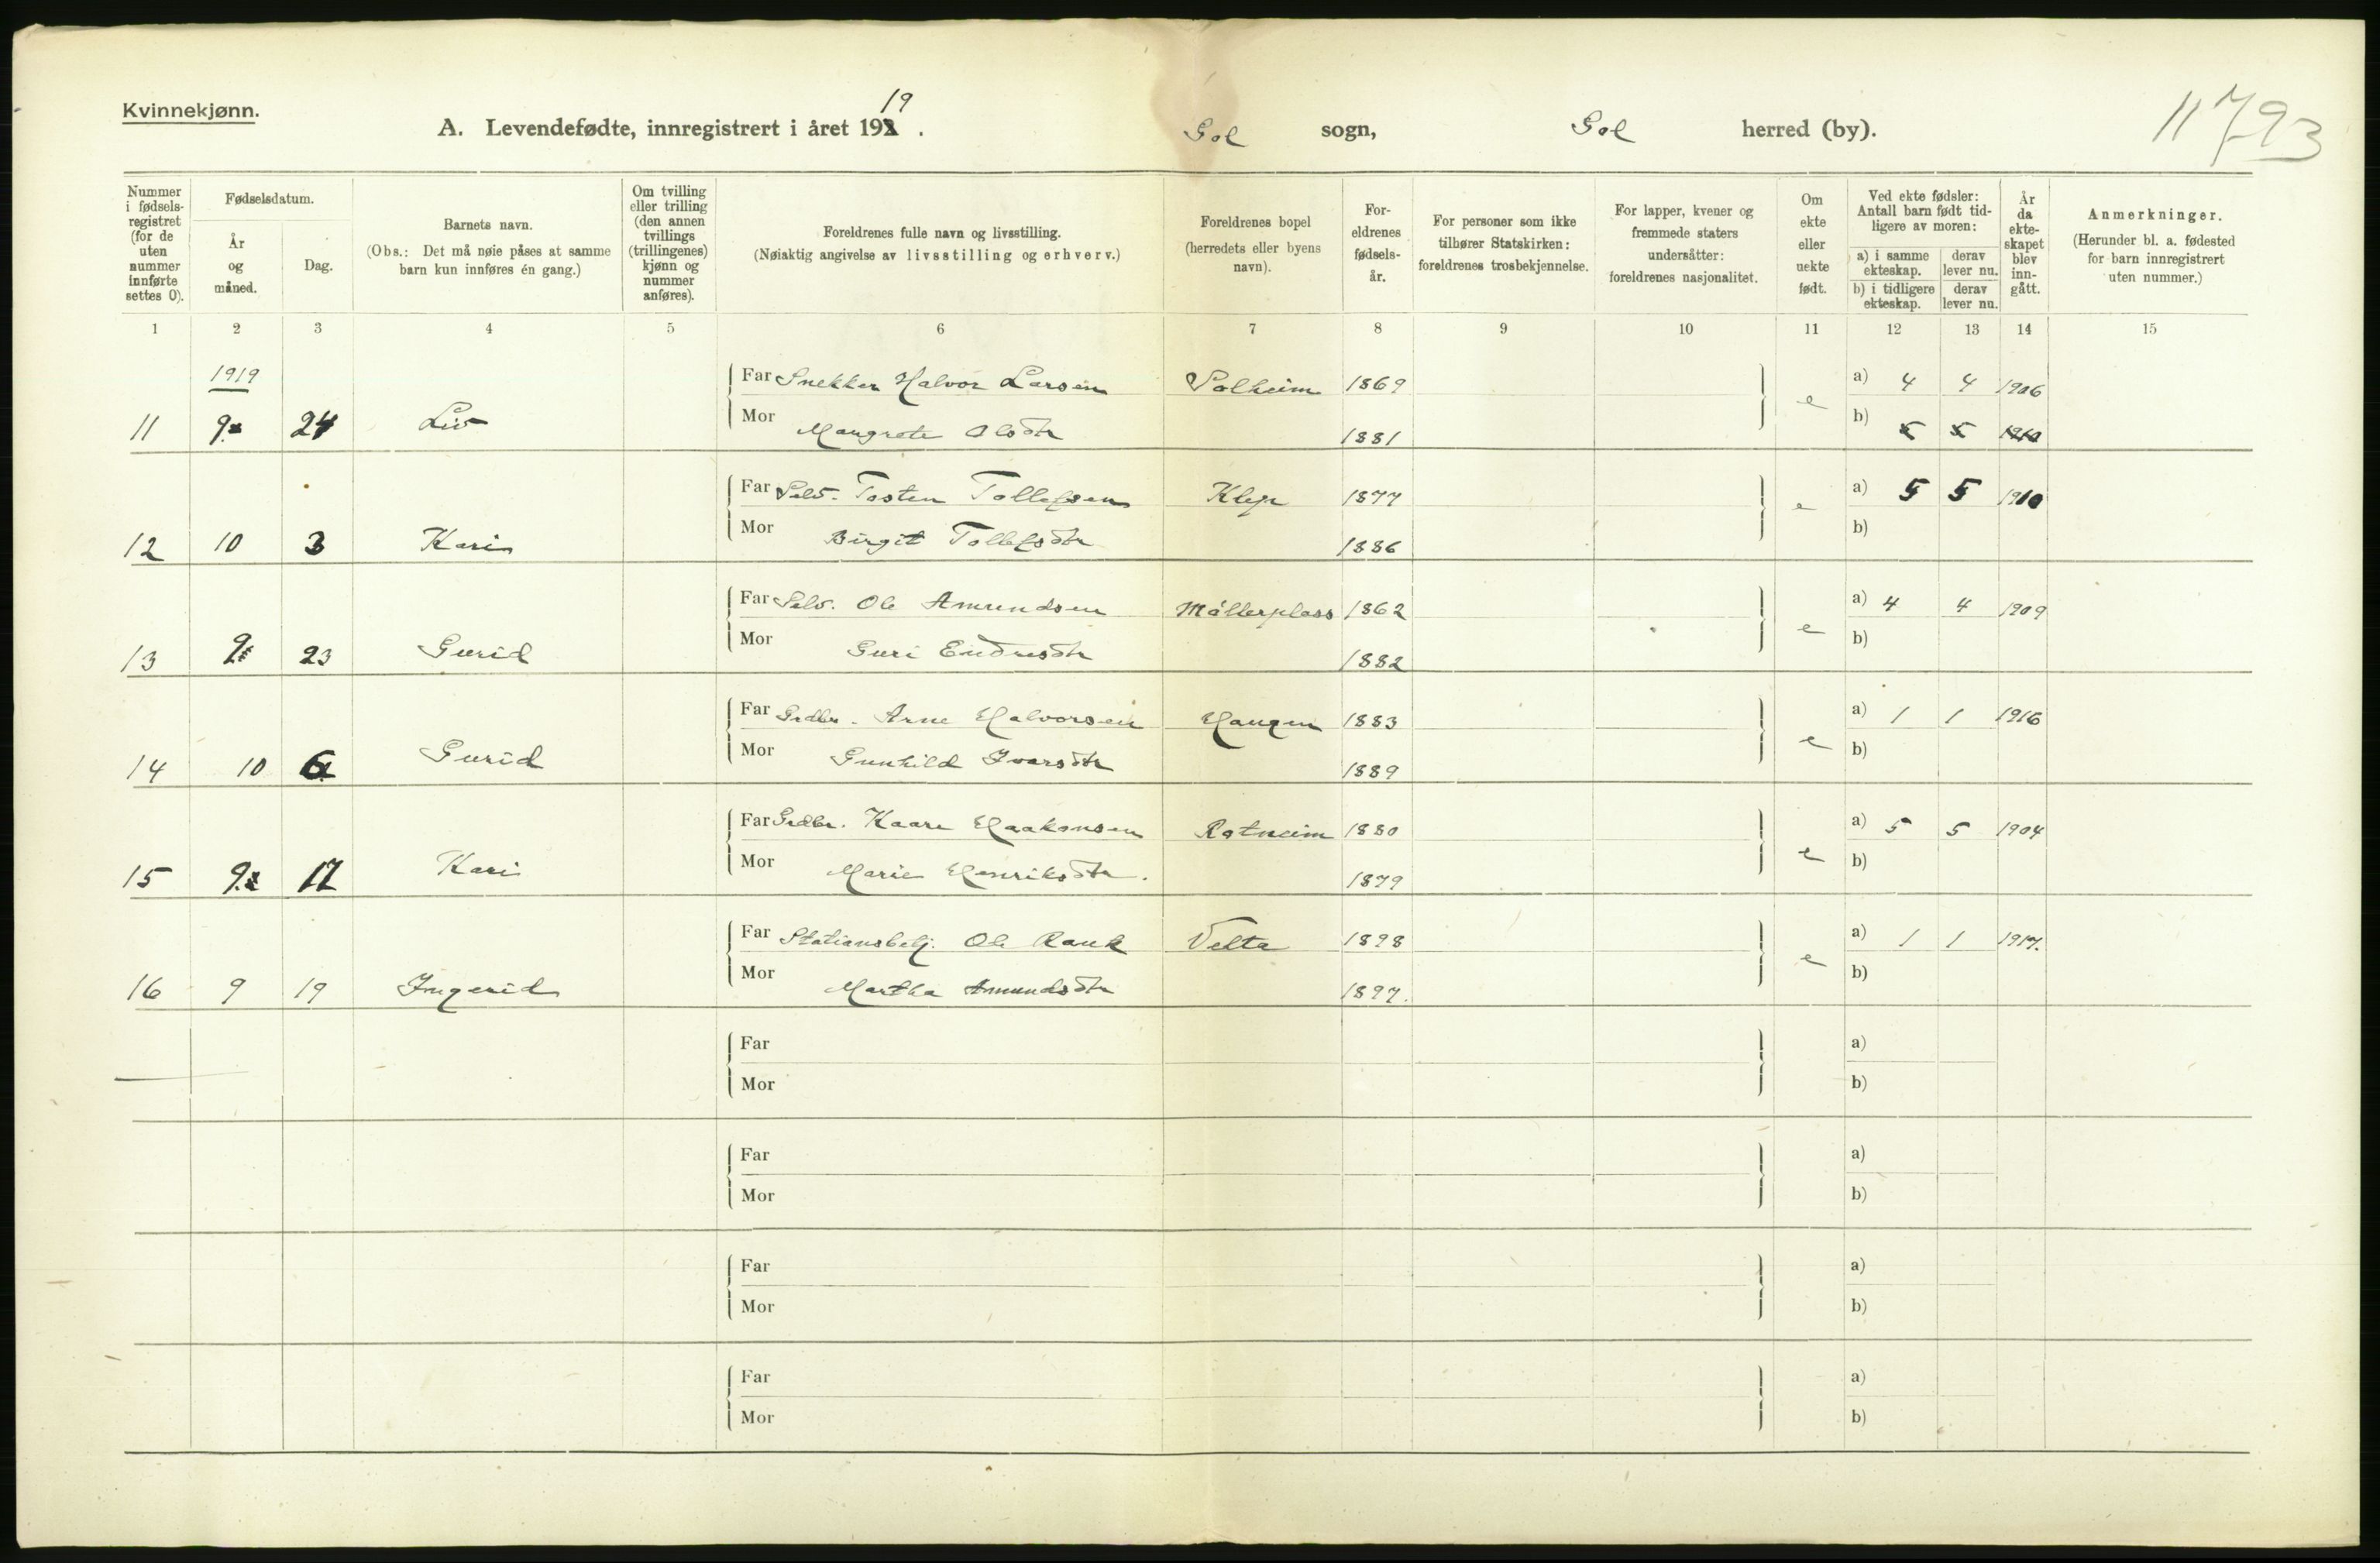 Kvinnekjønn.
A. Levendefødte, innregistrert i året 19 19. Gol sogn, Gol herred (by).
11793
Nummer i fødselsregistret (for de uten nummer innførte settes 0).
Fødselsdatum.
År og måned.
Dag.
Barnets navn.
(Obs.: Det må nøie påses at samme barn kun innføres én gang.)
Om tvilling eller trilling (den annen tvillings (trillingenes) kjønn og nummer anføres).
Foreldrenes fulle navn og livsstilling.
(Nøiaktig angivelse av livsstilling og erhverv.)
Foreldrenes bopel (herredets eller byens navn).
Foreldrenes fødselsår.
For personer som ikke tilhører Statskirken: foreldrenes trosbekjennelse.
For lapper, kvener og fremmede staters undersåtter: foreldrenes nasjonalitet.
Om ekte eller uekte født.
Ved ekte fødsler: Antall barn født tidligere av moren:
a) i samme ekteskap. derav lever nu.
b) i tidligere ekteskap. derav lever nu.
År da ekteskapet blev inngått.
Anmerkninger.
(Herunder bl. a. fødested for barn innregistrert uten nummer.)
1 2 3 4 5 6 7 8 9 10 11 12 13 14 15
1919
Far Snekker Halvor Larsen Solheim 1869 e a) 4 4 1906
11 9 24 Liv Mor Mangrete Olsdtr 1881 b) 5 5 1910
Far Selv. Tosten Tollefsen Klep 1877 e a) 5 5 1910
12 10 3 Kari Mor Birgit Tollefsdtr 1886 b)
Far Selv. Ole Amundsen Möllerplass 1862 e a) 4 4 1909
13 9 23 Gurid Mor Guri Endresdtr 1882 b)
Far Grdbr. Arne Halvorsen Haugen 1883 e a) 1 1 1916
14 10 6 Gurid Mor Gunhild Ivarsdtr 1889 b)
Far Grdbr. Kaare Haakonsen Rotneim 1880 e a) 5 5 1904
15 9 17 Kari Mor Marie Henriksdtr. 1879 b)
Far Stationsbetj. Ole Rank Velta 1898 e a) 1 1 1917.
16 9 19 Ingerid Mor Martha Amundsdtr 1897. b)
Far a)
Mor b)
Far a)
Mor b)
Far a)
Mor b)
Far a)
Mor b)